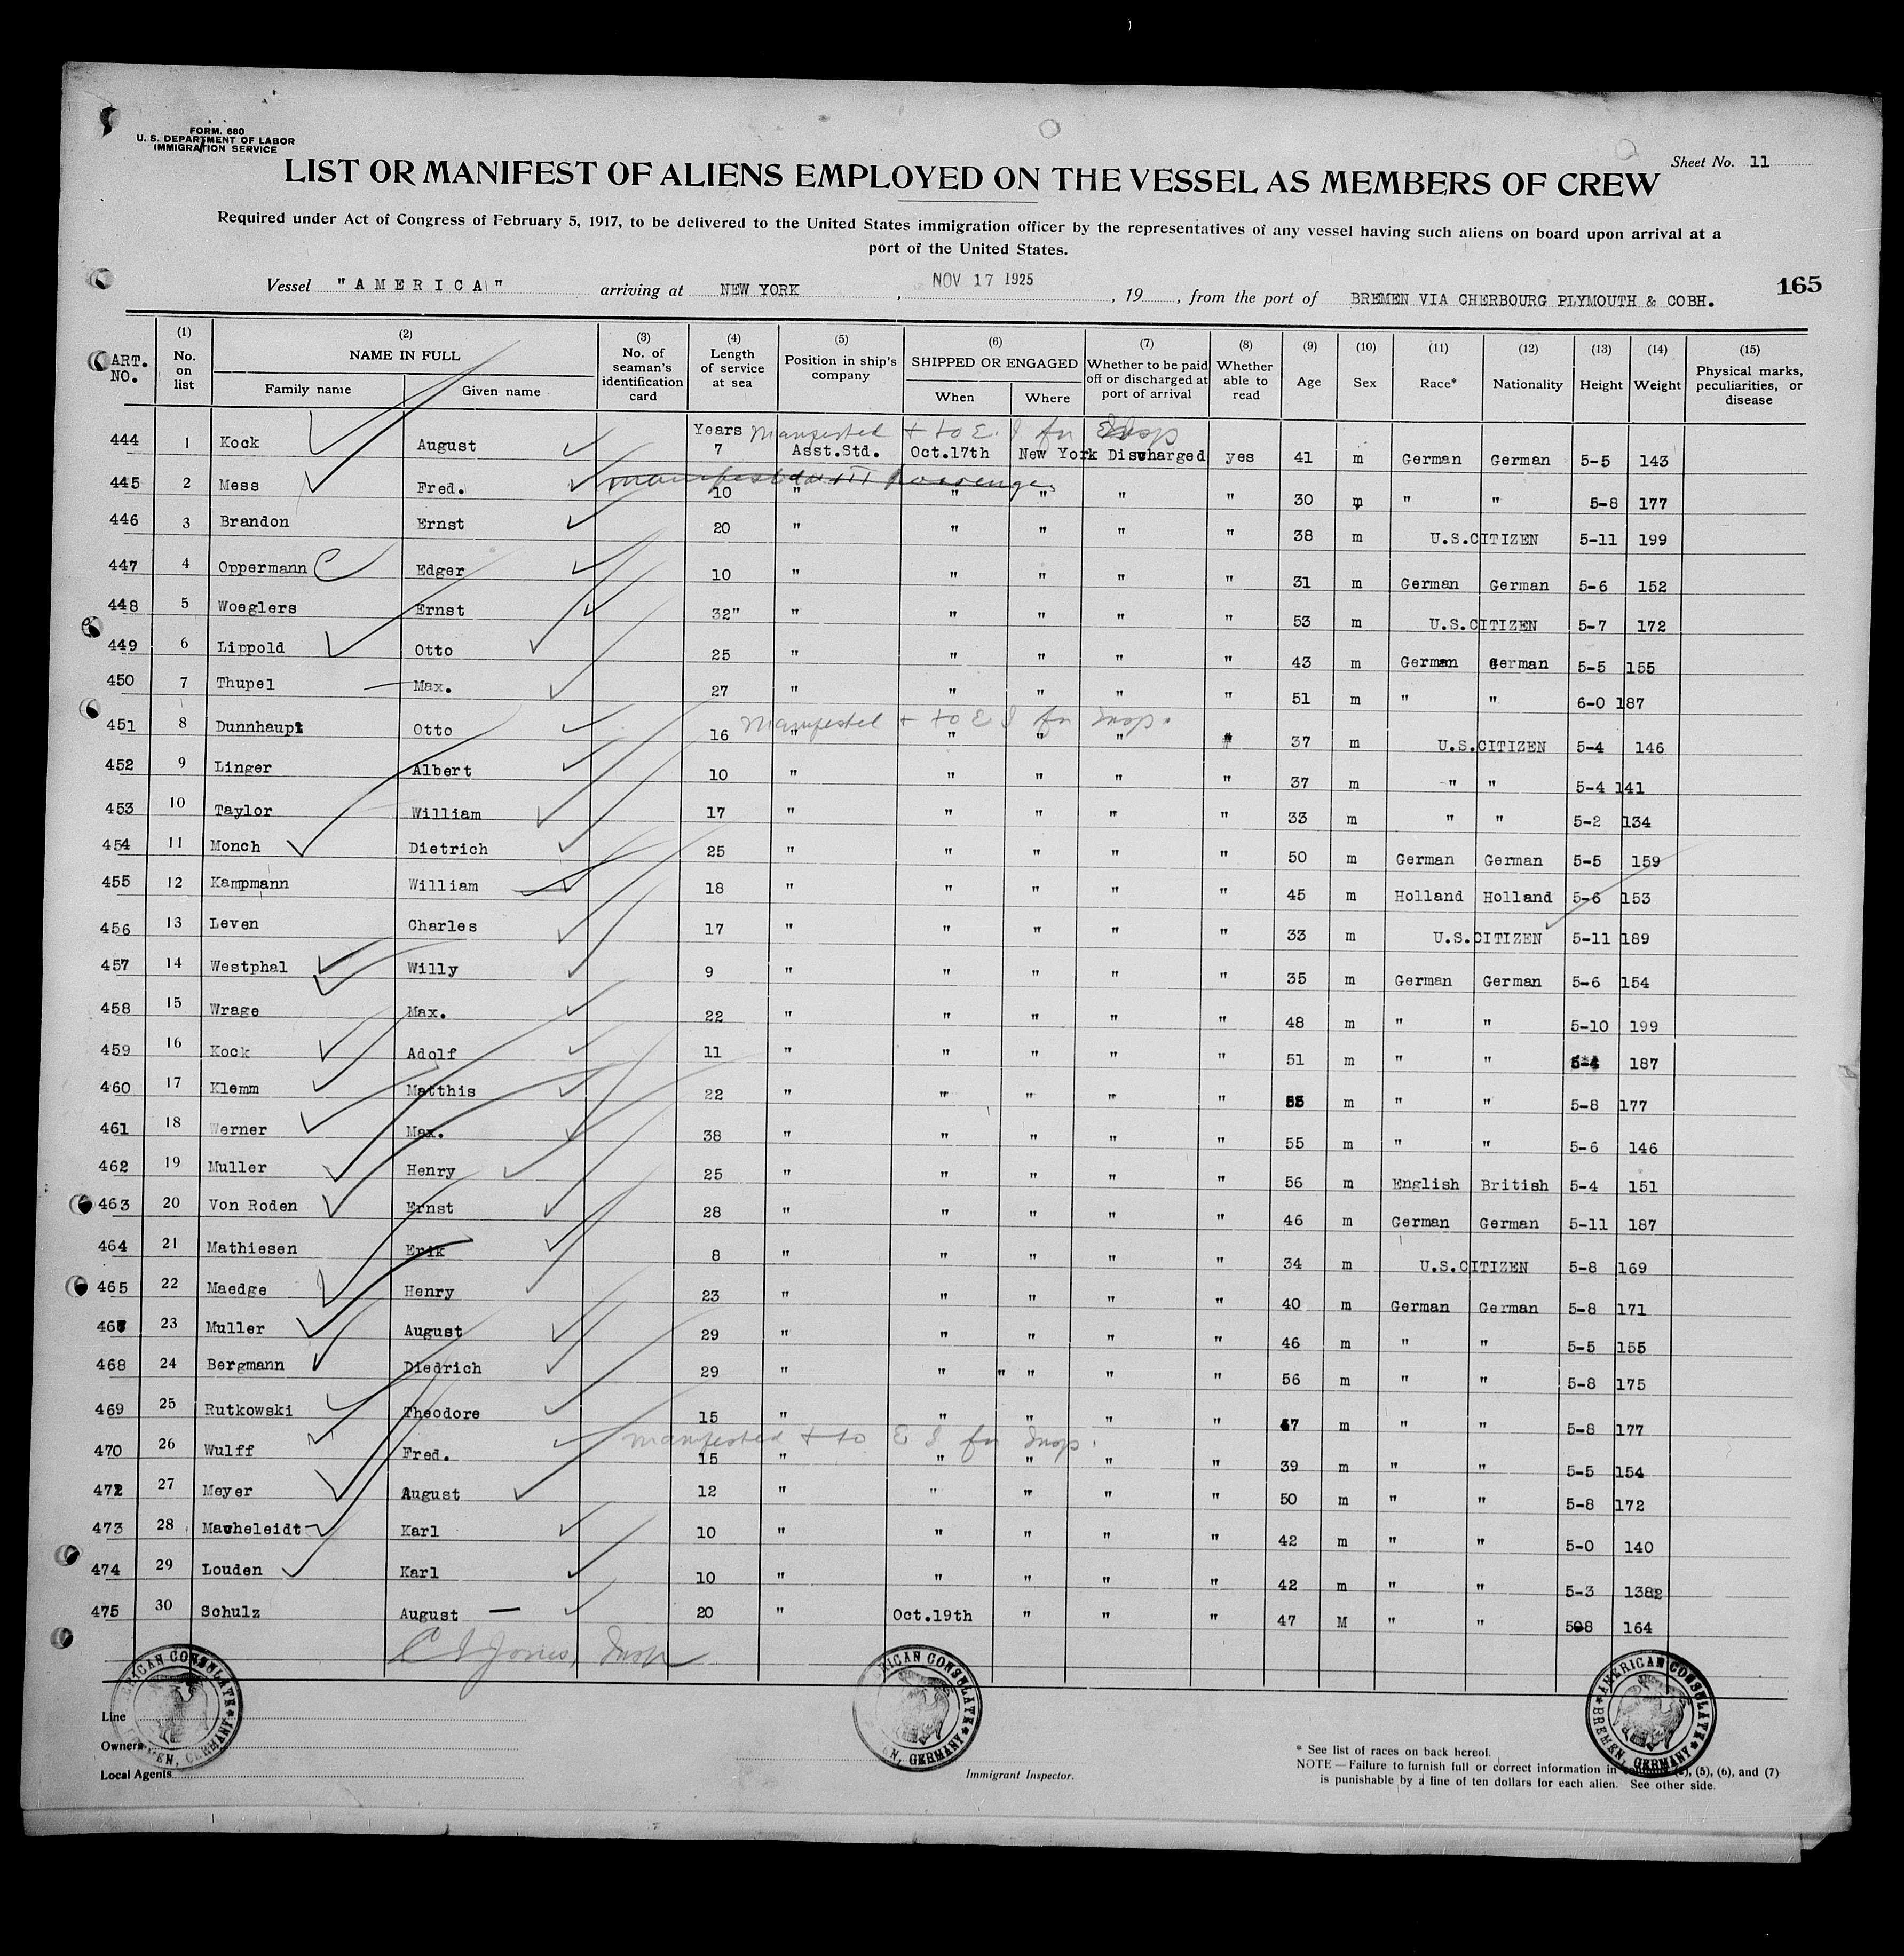 FORM. 680
U. S. DEPARTMENT OF LABOR
IMMIGRATION SERVICE
Sheet No. 11
LIST OR MANIFEST OF ALIENS EMPLOYED ON THE VESSEL AS MEMBERS OF CREW
Required under Act of Congress of February 5, 1917, to be delivered to the United States immigration officer by the representatives of any vessel having such aliens on board upon arrival at a
port of the United States.
165
Vessel "AMERICA" arriving at NEW YORK, NOV 17 1925, 19, from the port of BREMEN VIA CHERBOURG PLYMOUTH & COBH.
ART. NO. (1) No. on list (2) NAME IN FULL Family name Given name (3) No. of seaman's identification card (4) Length of service at sea (5) Position in ship's company (6) SHIPPED OR ENGAGED When Where (7) Whether to be paid off or discharged at port of arrival (8) Whether able to read (9) Age (10) Sex (11) Race* (12) Nationality (13) Height (14) Weight (15) Physical marks, peculiarities, or disease
Years Manifested + to E. I for Insp
444 1 Kock August 7 Asst.Std. Oct.17th New York Discharged yes 41 m German German 5-5 143
manifested as III Passenger
445 2 Mess Fred. 10 " " " " " 30 m " " 5-8 177
446 3 Brandon Ernst 20 " " " " " 38 m U.S.CITIZEN 5-11 199
447 4 Oppermann C Edger 10 " " " " " 31 m German German 5-6 152
448 5 Woeglers Ernst 32" " " " " " 53 m U.S.CITIZEN 5-7 172
449 6 Lippold Otto 25 " " " " " 43 m German German 5-5 155
450 7 Thupel Max. 27 " " " " " 51 m " " 6-0 187
Manifested + to E I for Insp.
451 8 Dunnhaupt Otto 16 " " " " " 37 m U.S.CITIZEN 5-4 146
452 9 Linger Albert 10 " " " " " 37 m " " 5-4 141
453 10 Taylor William 17 " " " " " 33 m " " 5-2 134
454 11 Monch Dietrich 25 " " " " " 50 m German German 5-5 159
455 12 Kampmann William 18 " " " " " 45 m Holland Holland 5-6 153
456 13 Leven Charles 17 " " " " " 33 m U.S.CITIZEN 5-11 189
457 14 Westphal Willy 9 " " " " " 35 m German German 5-6 154
458 15 Wrage Max. 22 " " " " " 48 m " " 5-10 199
459 16 Kock Adolf 11 " " " " " 51 m " " 5-4 187
460 17 Klemm Matthis 22 " " " " " m " " 5-8 177
461 18 Werner Max. 38 " " " " " 55 m " " 5-6 146
462 19 Muller Henry 25 " " " " " 56 m English British 5-4 151
463 20 Von Roden Ernst 28 " " " " " 46 m German German 5-11 187
464 21 Mathiesen Erik 8 " " " " " 34 m U.S.CITIZEN 5-8 169
465 22 Maedge Henry 23 " " " " " 40 m German German 5-8 171
467 23 Muller August 29 " " " " " 46 m " " 5-5 155
468 24 Bergmann Diedrich 29 " " " " " " 56 m " " 5-8 175
469 25 Rutkowski Theodore 15 " " " " " 47 m " " 5-8 177
manifested + to E I for Insp.
470 26 Wulff Fred. 15 " " " " " 39 m " " 5-5 154
472 27 Meyer August 12 " " " " " 50 m " " 5-8 172
473 28 Macheleidt Karl 10 " " " " " 42 m " " 5-0 140
474 29 Louden Karl 10 " " " " " 42 m " " 5-3 1382
475 30 Schulz August 20 " Oct.19th " " " 47 M " " 5-8 164
C I Jones, Insp
AMERICAN CONSULATE BREMEN, GERMANY
AMERICAN CONSULATE BREMEN, GERMANY
AMERICAN CONSULATE BREMEN, GERMANY
Line
Owners
Local Agents
Immigrant Inspector.
* See list of races on back hereof.
NOTE — Failure to furnish full or correct information in (5), (6), and (7)
is punishable by a fine of ten dollars for each alien. See other side.